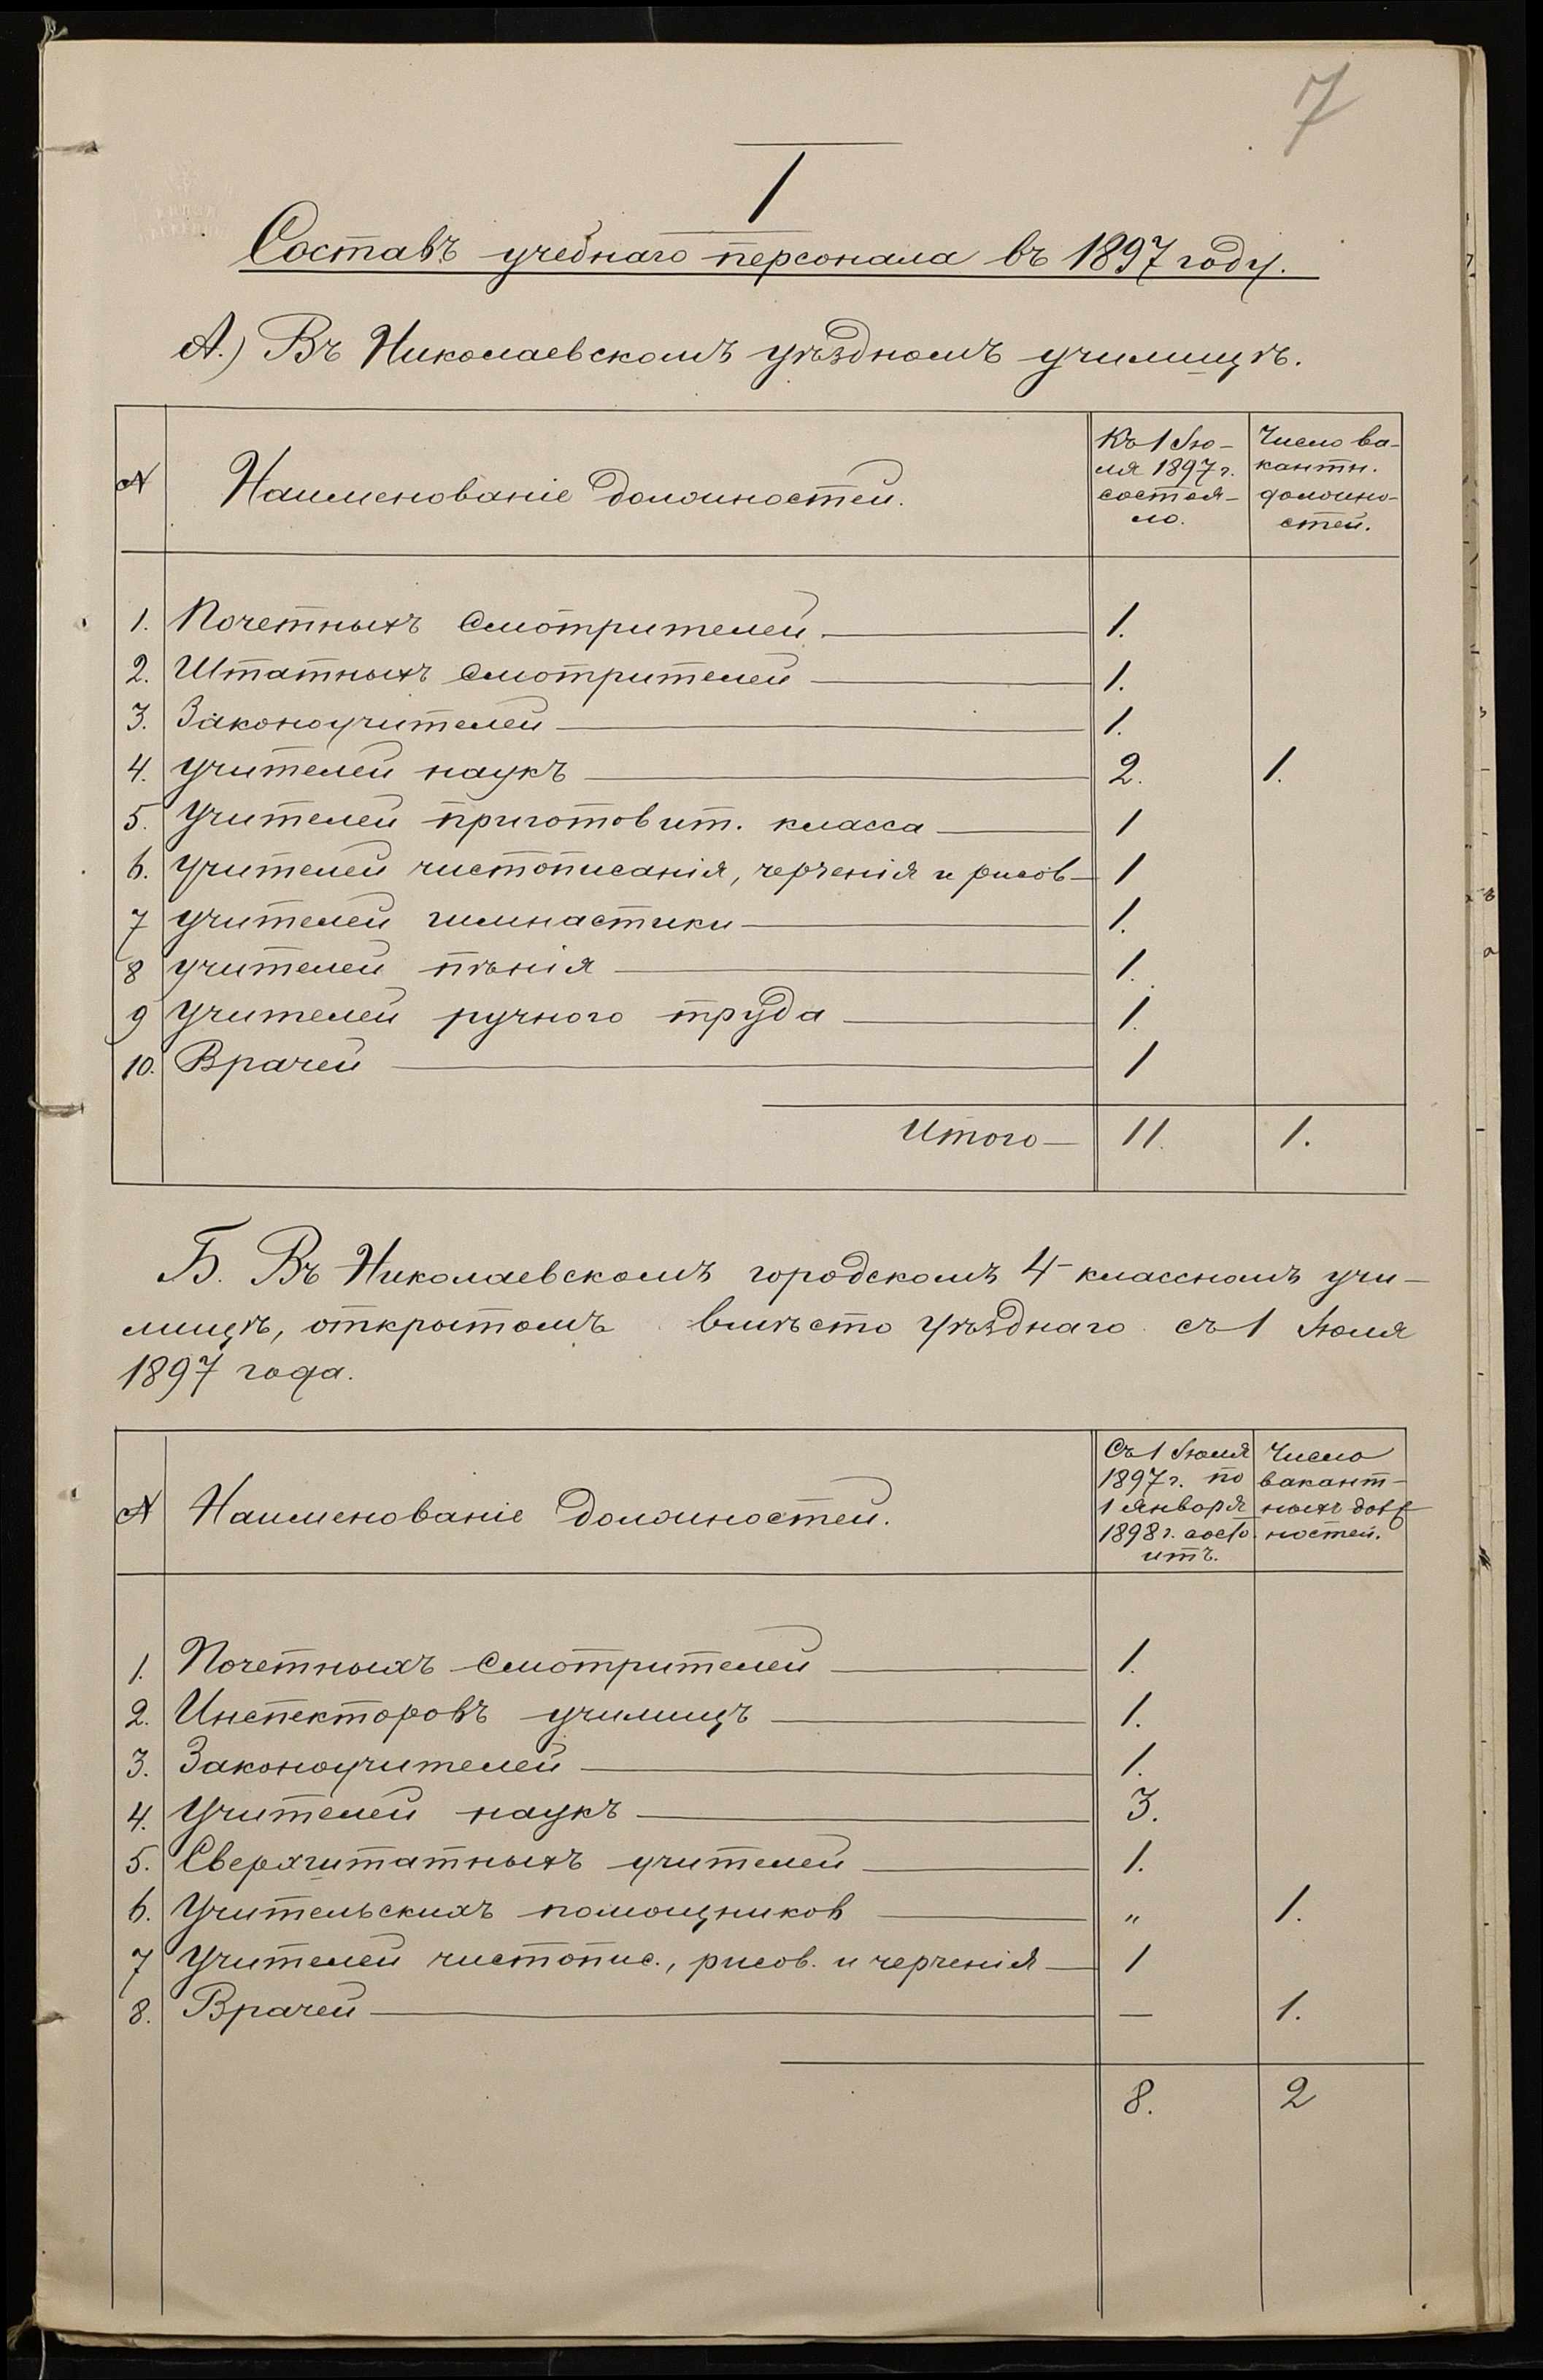 7
I
Составъ учебнаго персонала въ 1897 году.
А.) Въ Николаевскомъ уѣздномъ училищѣ.
№ Наименованіе должностей. Къ 1 Іюля 1897 г. состояло. Число вакантн. должностей.
1. Почетныхъ смотрителей — 1.
2. Штатныхъ смотрителей — 1.
3. Законоучителей — 1.
4. Учителей наукъ — 2. 1.
5. Учителей приготовит. класса — 1
6. Учителей чистописанія, черченія и рисов — 1
7 Учителей гимнастики — 1.
8 Учителей пѣнія — 1.
9 Учителей ручного труда — 1.
10. Врачей — 1
Итого — 11. 1.
Б. Въ Николаевскомъ городскомъ 4-классномъ учи-
лищѣ, открытомъ вмѣсто уѣзднаго съ 1 Іюля
1897 года.
№ Наименованіе должностей. Съ 1 Іюля 1897 г. по 1 Января 1898 г. состоитъ. Число вакантныхъ должностей.
1. Почетныхъ смотрителей — 1.
2. Инспекторовъ училищъ — 1.
3. Законоучителей — 1.
4. Учителей наукъ — 3.
5. Сверхштатныхъ учителей — 1.
6. Учительскихъ помощников — „ 1.
7 Учителей чистопис., рисов. и черченія — 1
8. Врачей — — 1.
8. 2